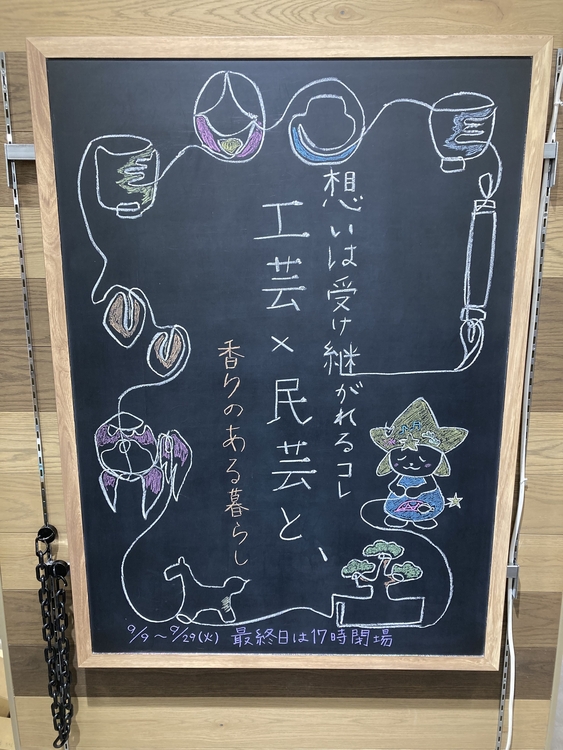 想いは受け継がれるコレ
工芸×民芸と、
香りのある暮らし
9/9～9/29(火) 最終日は17時閉場